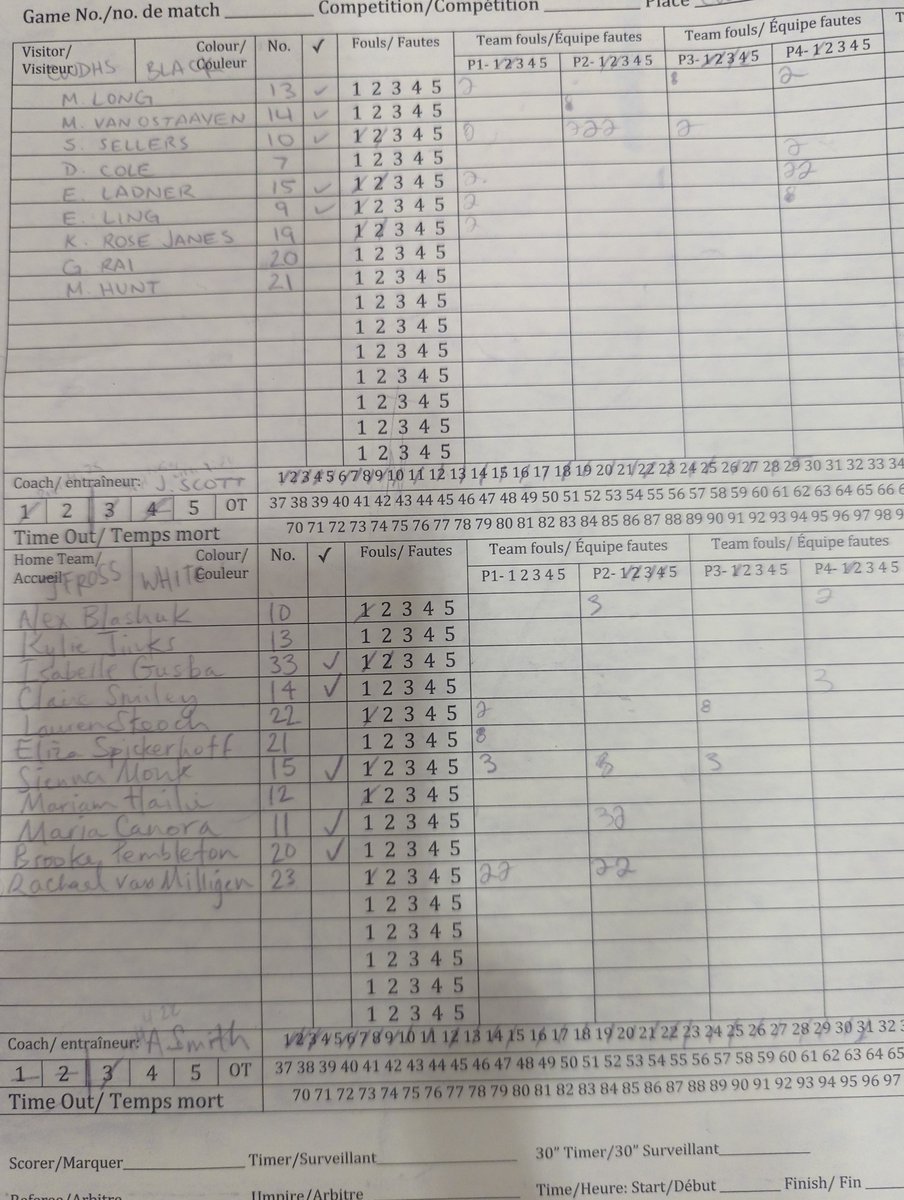 Game No./no. de match Competition/Compétition Place
Visitor/ Visiteur Colour/ Couleur No. ✓ Fouls/ Fautes Team fouls/Équipe fautes Team fouls/Équipe fautes
BLACK P1- 1 2 3 4 5 P2- 1 2 3 4 5 P3- 1 2 3 4 5 P4- 1 2 3 4 5
M. LONG 13 ✓ 1 2 3 4 5 2 8 2
M. VAN OSTAAVEN 14 ✓ 1 2 3 4 5 8
S. SELLERS 10 ✓ 1 2 3 4 5 222 2
D. COLE 7 1 2 3 4 5 2
E. LADNER 15 ✓ 1 2 3 4 5 2 22
E. LING 9 ✓ 1 2 3 4 5 2 8
K. ROSE JANES 19 1 2 3 4 5 2
G RAI 20 1 2 3 4 5
M. HUNT 21 1 2 3 4 5
1 2 3 4 5
1 2 3 4 5
1 2 3 4 5
1 2 3 4 5
1 2 3 4 5
1 2 3 4 5
1 2 3 4 5
Coach/ entraîneur: J. SCOTT 1 2 3 4 5 6 7 8 9 10 11 12 13 14 15 16 17 18 19 20 21 22 23 24 25 26 27 28 29 30 31 32 33 34
1 2 3 4 5 OT 37 38 39 40 41 42 43 44 45 46 47 48 49 50 51 52 53 54 55 56 57 58 59 60 61 62 63 64 65 66
Time Out/ Temps mort 70 71 72 73 74 75 76 77 78 79 80 81 82 83 84 85 86 87 88 89 90 91 92 93 94 95 96 97 98
Home Team/ Accueil Colour/ Couleur No. ✓ Fouls/ Fautes Team fouls/ Équipe fautes Team fouls/ Équipe fautes
JFROSS WHITE P1- 1 2 3 4 5 P2- 1 2 3 4 5 P3- 1 2 3 4 5 P4- 1 2 3 4 5
Alex Blashuk 10 1 2 3 4 5 3 2
Kylie Jinks 13 1 2 3 4 5
Isabelle Gusba 33 ✓ 1 2 3 4 5
Claire Smiley 14 ✓ 1 2 3 4 5 3
Lauren Stooch 22 1 2 3 4 5 2 8
Eliza Spickerhoff 21 1 2 3 4 5 8
Sienna Monk 15 ✓ 1 2 3 4 5 3 3
Mariam Hailu 12 1 2 3 4 5
Maria Canora 11 ✓ 1 2 3 4 5 32
Brooke Templeton 20 ✓ 1 2 3 4 5
Rachael van Milligen 23 1 2 3 4 5 22 22
1 2 3 4 5
1 2 3 4 5
1 2 3 4 5
1 2 3 4 5
1 2 3 4 5
Coach/ entraîneur: A Smith 1 2 3 4 5 6 7 8 9 10 11 12 13 14 15 16 17 18 19 20 21 22 23 24 25 26 27 28 29 30 31 32
1 2 3 4 5 OT 37 38 39 40 41 42 43 44 45 46 47 48 49 50 51 52 53 54 55 56 57 58 59 60 61 62 63 64 65
Time Out/ Temps mort 70 71 72 73 74 75 76 77 78 79 80 81 82 83 84 85 86 87 88 89 90 91 92 93 94 95 96 97
Scorer/Marquer Timer/Surveillant 30" Timer/30" Surveillant
Referee/Arbitre Umpire/Arbitre Time/Heure: Start/Début Finish/ Fin